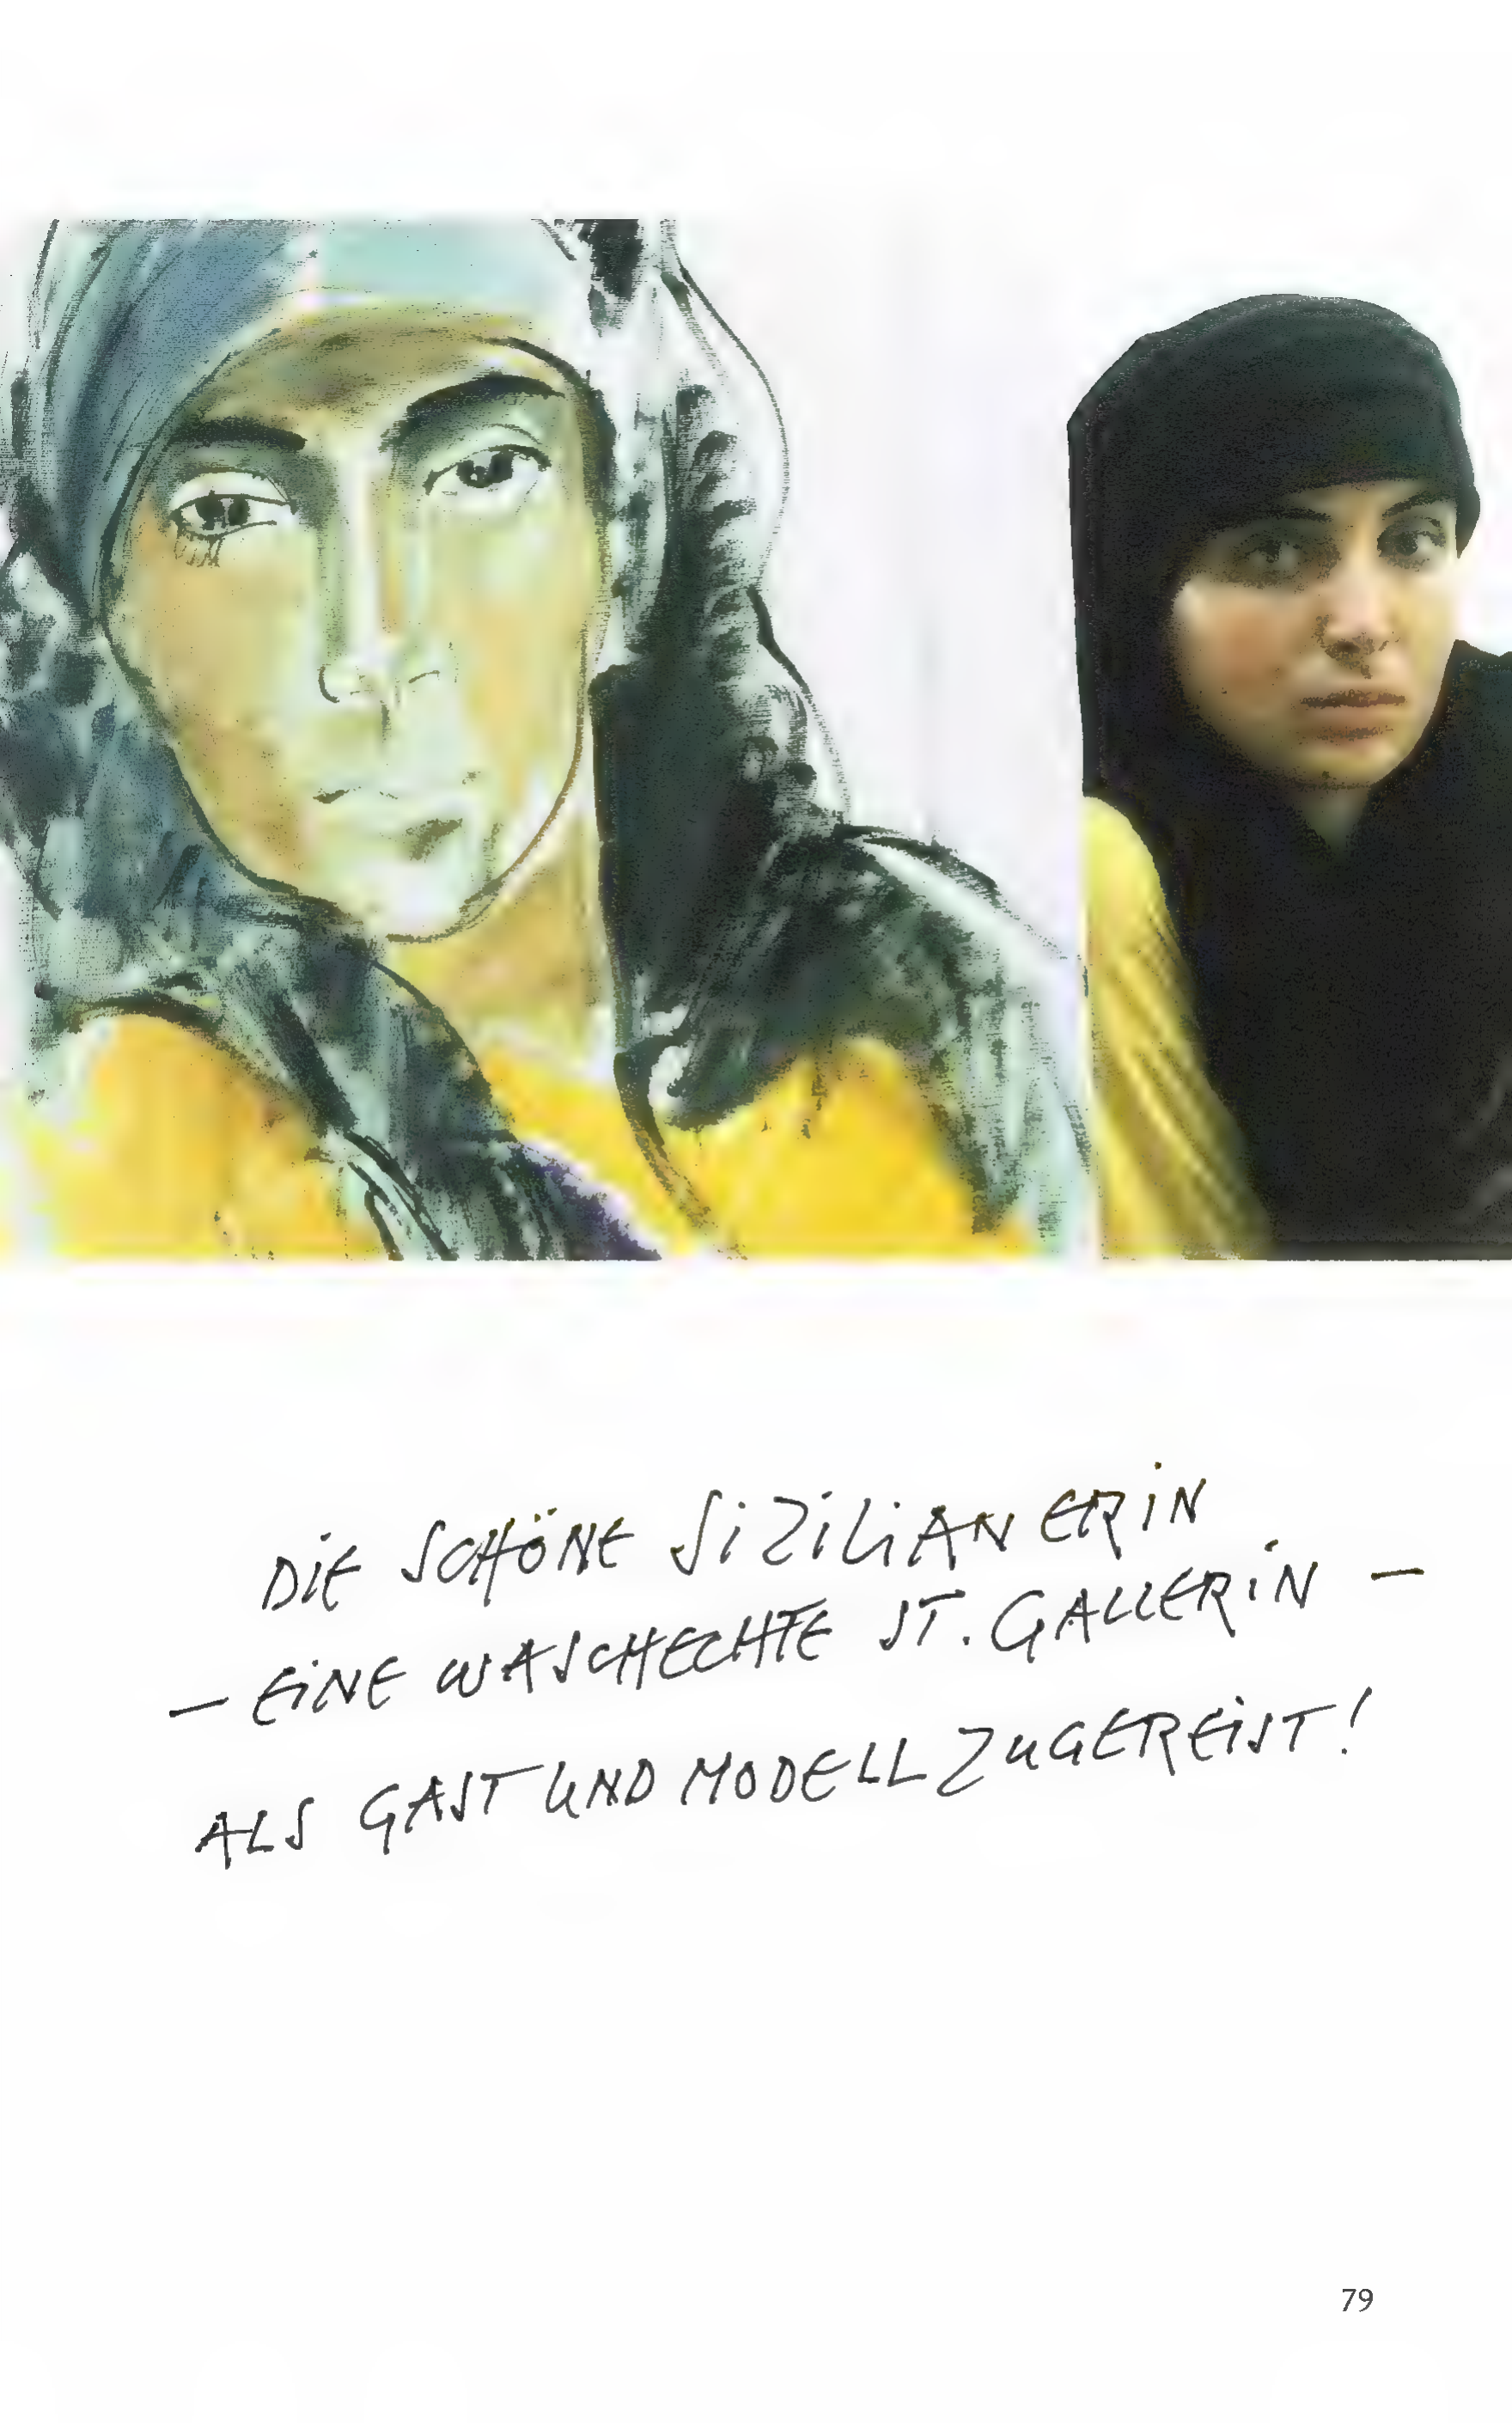 DIE SCHÖNE SIZILIANERIN
– EINE WASCHECHTE ST. GALLERIN –
ALS GAST UND MODELL ZUGEREIST!
79